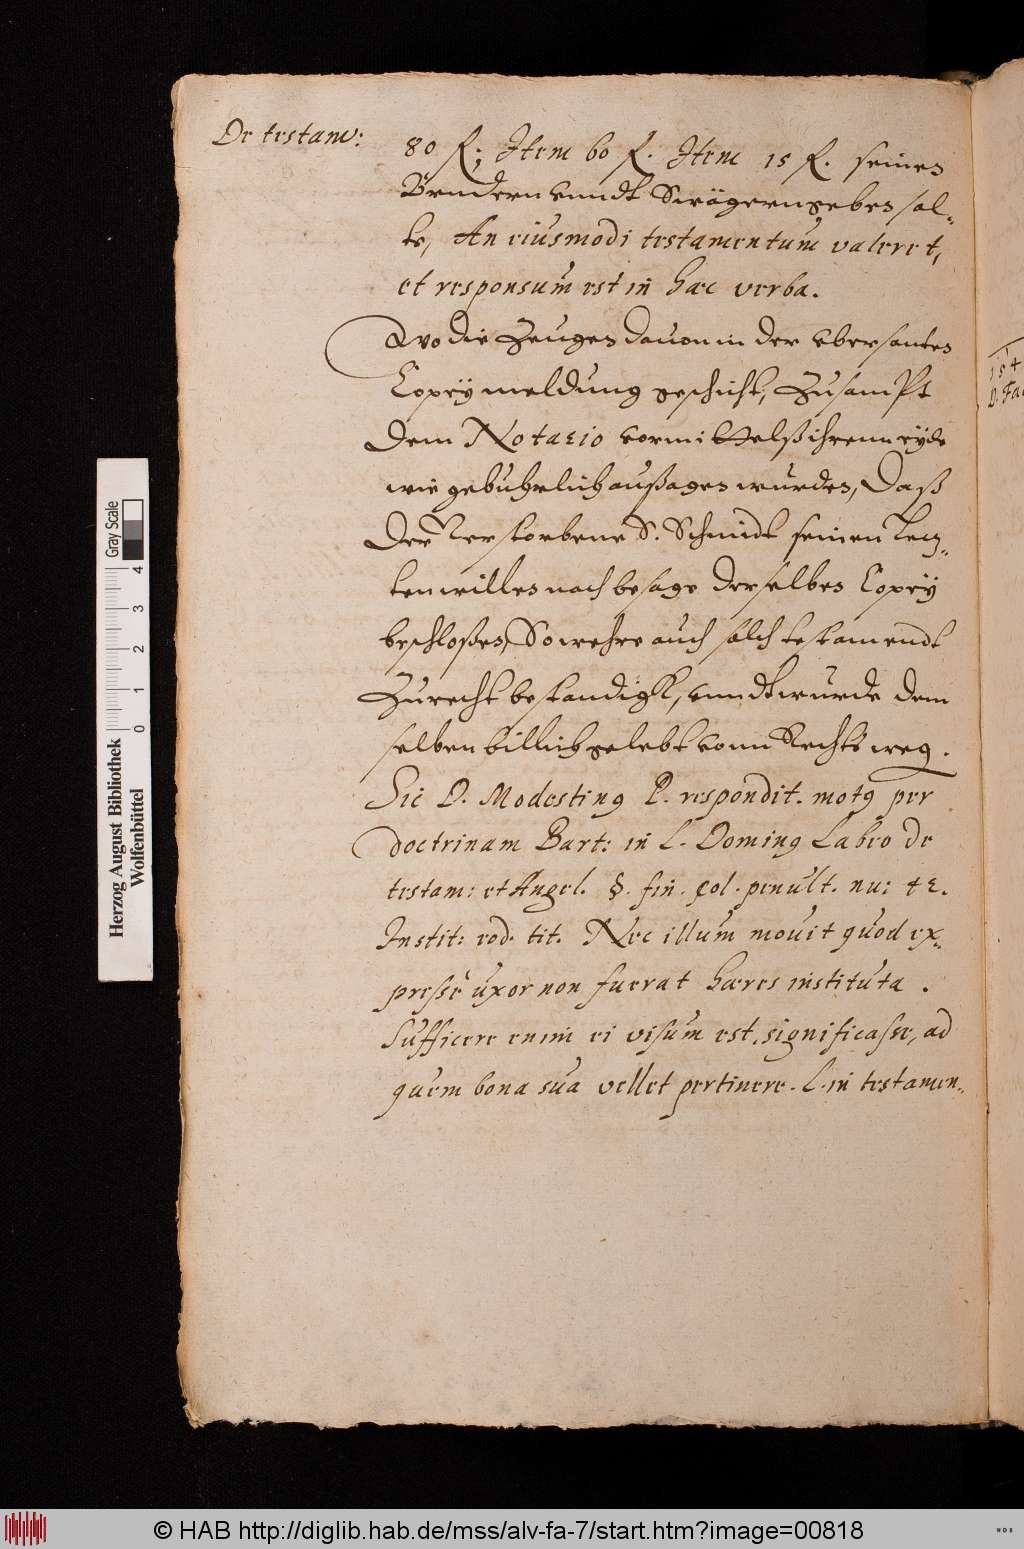 De testam:
80 f; Item 60 f. Item 15 f. seinen
Brudern unndt Swägern geben sol-
te, An eiusmodi testamentum valeret,
et responsum est in haec verba.
Wo die Zeugen davon in der ubersanten
Copey meldung geschicht, Zusampt
dem Notario vormittelß ihrenn eyde
wie gebuhrlich außagen wurden, Daß
der Verstorbene S. Schmidt seinen Lecz-
ten willen nach besage derselben Copey
beschloßen, So wehre auch solch testamendt
Zurecht bestandigk, unndt wurde dem
selben billich gelebt Vonn Rechts weg.
Sic D. Modestinq P. respondit. motq per
doctrinam Bart: in L. Dominq Labeo de
testam: et Angel. §. fin. col. penult. nu:
Instit: eod. tit. Nec illum mouit quod ex-
presse uxor non fuerat haeres instituta.
Sufficere enim ei visum est, significasse, ad
quem bona sua vellet pertinere. L. in testamen-
154
D. Fac
Herzog August Bibliothek
Wolfenbüttel
0 1 2 3 4
Gray Scale
© HAB http://diglib.hab.de/mss/alv-fa-7/start.htm?image=00818